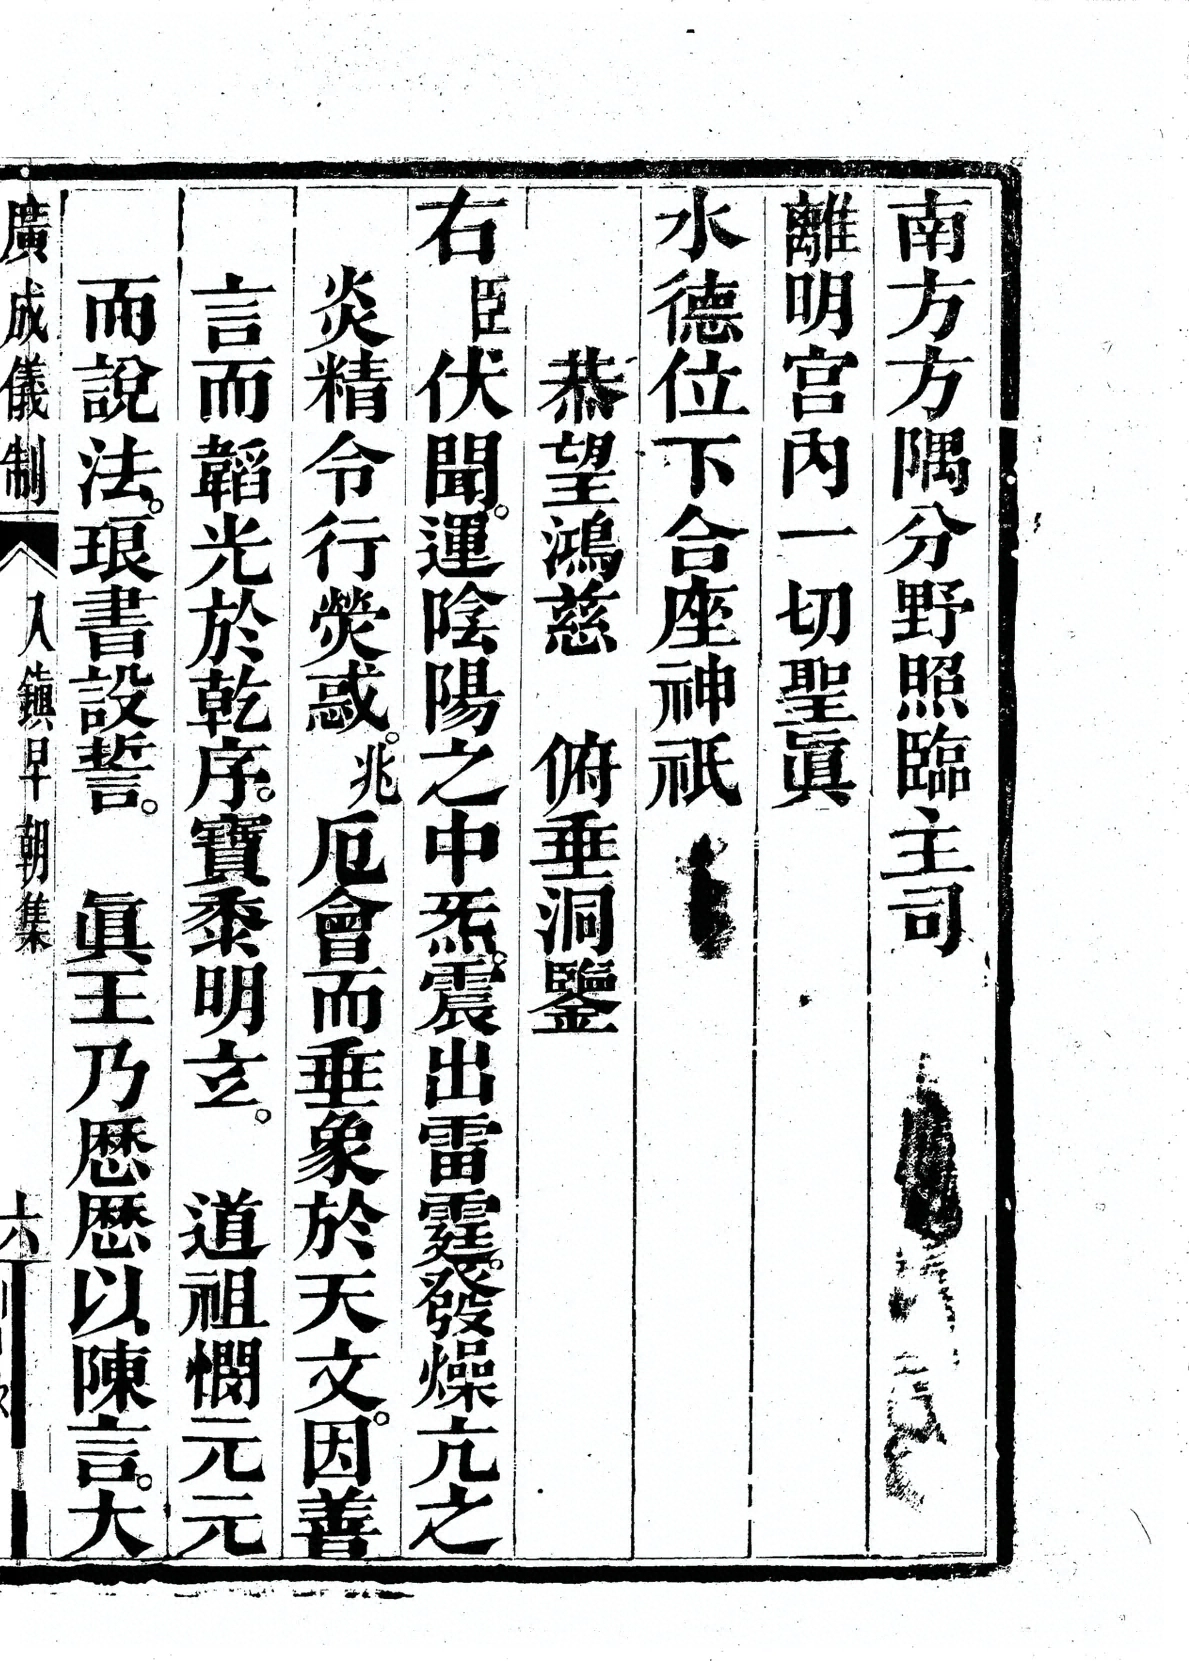 南方方隅分野照臨主司
離明宫內一切聖眞
水德位下合座神祇
恭望鴻慈　俯垂洞鑒
右臣伏聞。運陰陽之中炁。震出雷霆。發燥亢之
炎精令行熒惑。兆厄會而垂象於天文。因善
言而韜光於乾序。寶黍明立。　道祖憫元元
而說法。琅書設誓。　眞王乃歷歷以陳言。大
廣成儀制　入鎮早朝集　六